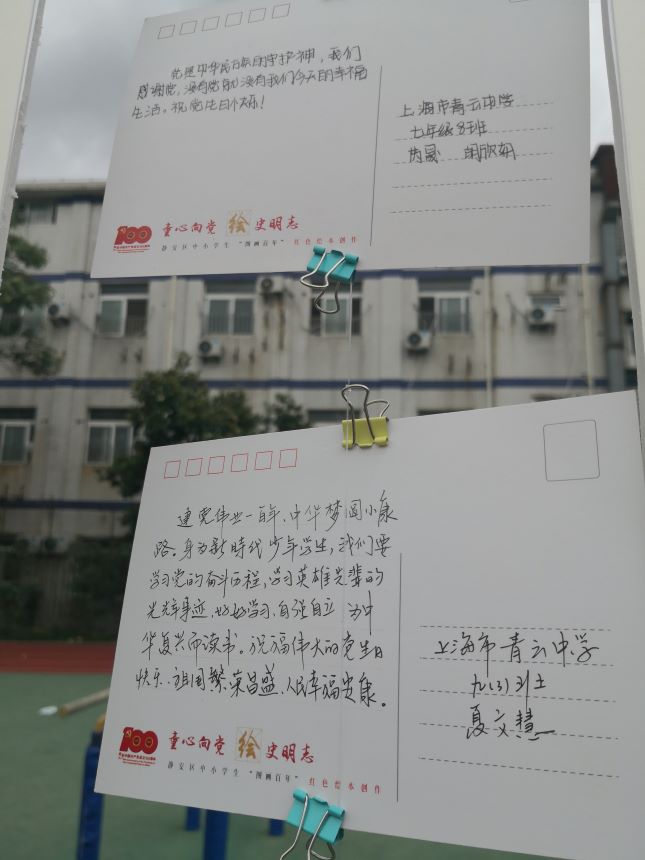 党是中华民族的守护神，我们
感谢党，没有党就没有我们今天的幸福
生活。祝党生日快乐！
上海市青云中学
七年级8班
芮晟 胡欣妍
100
童心向党 绘 史明志
静安区中小学生 "图画百年" 红色绘本创作
建党伟业一百年，中华梦圆小康
路。身为新時代少年学生，我们要
学习党的奋斗历程，学习英雄先辈的
光辉事迹，好好学习，自强自立 为中
华复兴而读书。祝福伟大的党生日
快乐，祖国繁荣昌盛，人民幸福安康。
上海市青云中学
九(3)班
夏文慧
100
童心向党 绘 史明志
静安区中小学生 "图画百年" 红色绘本创作